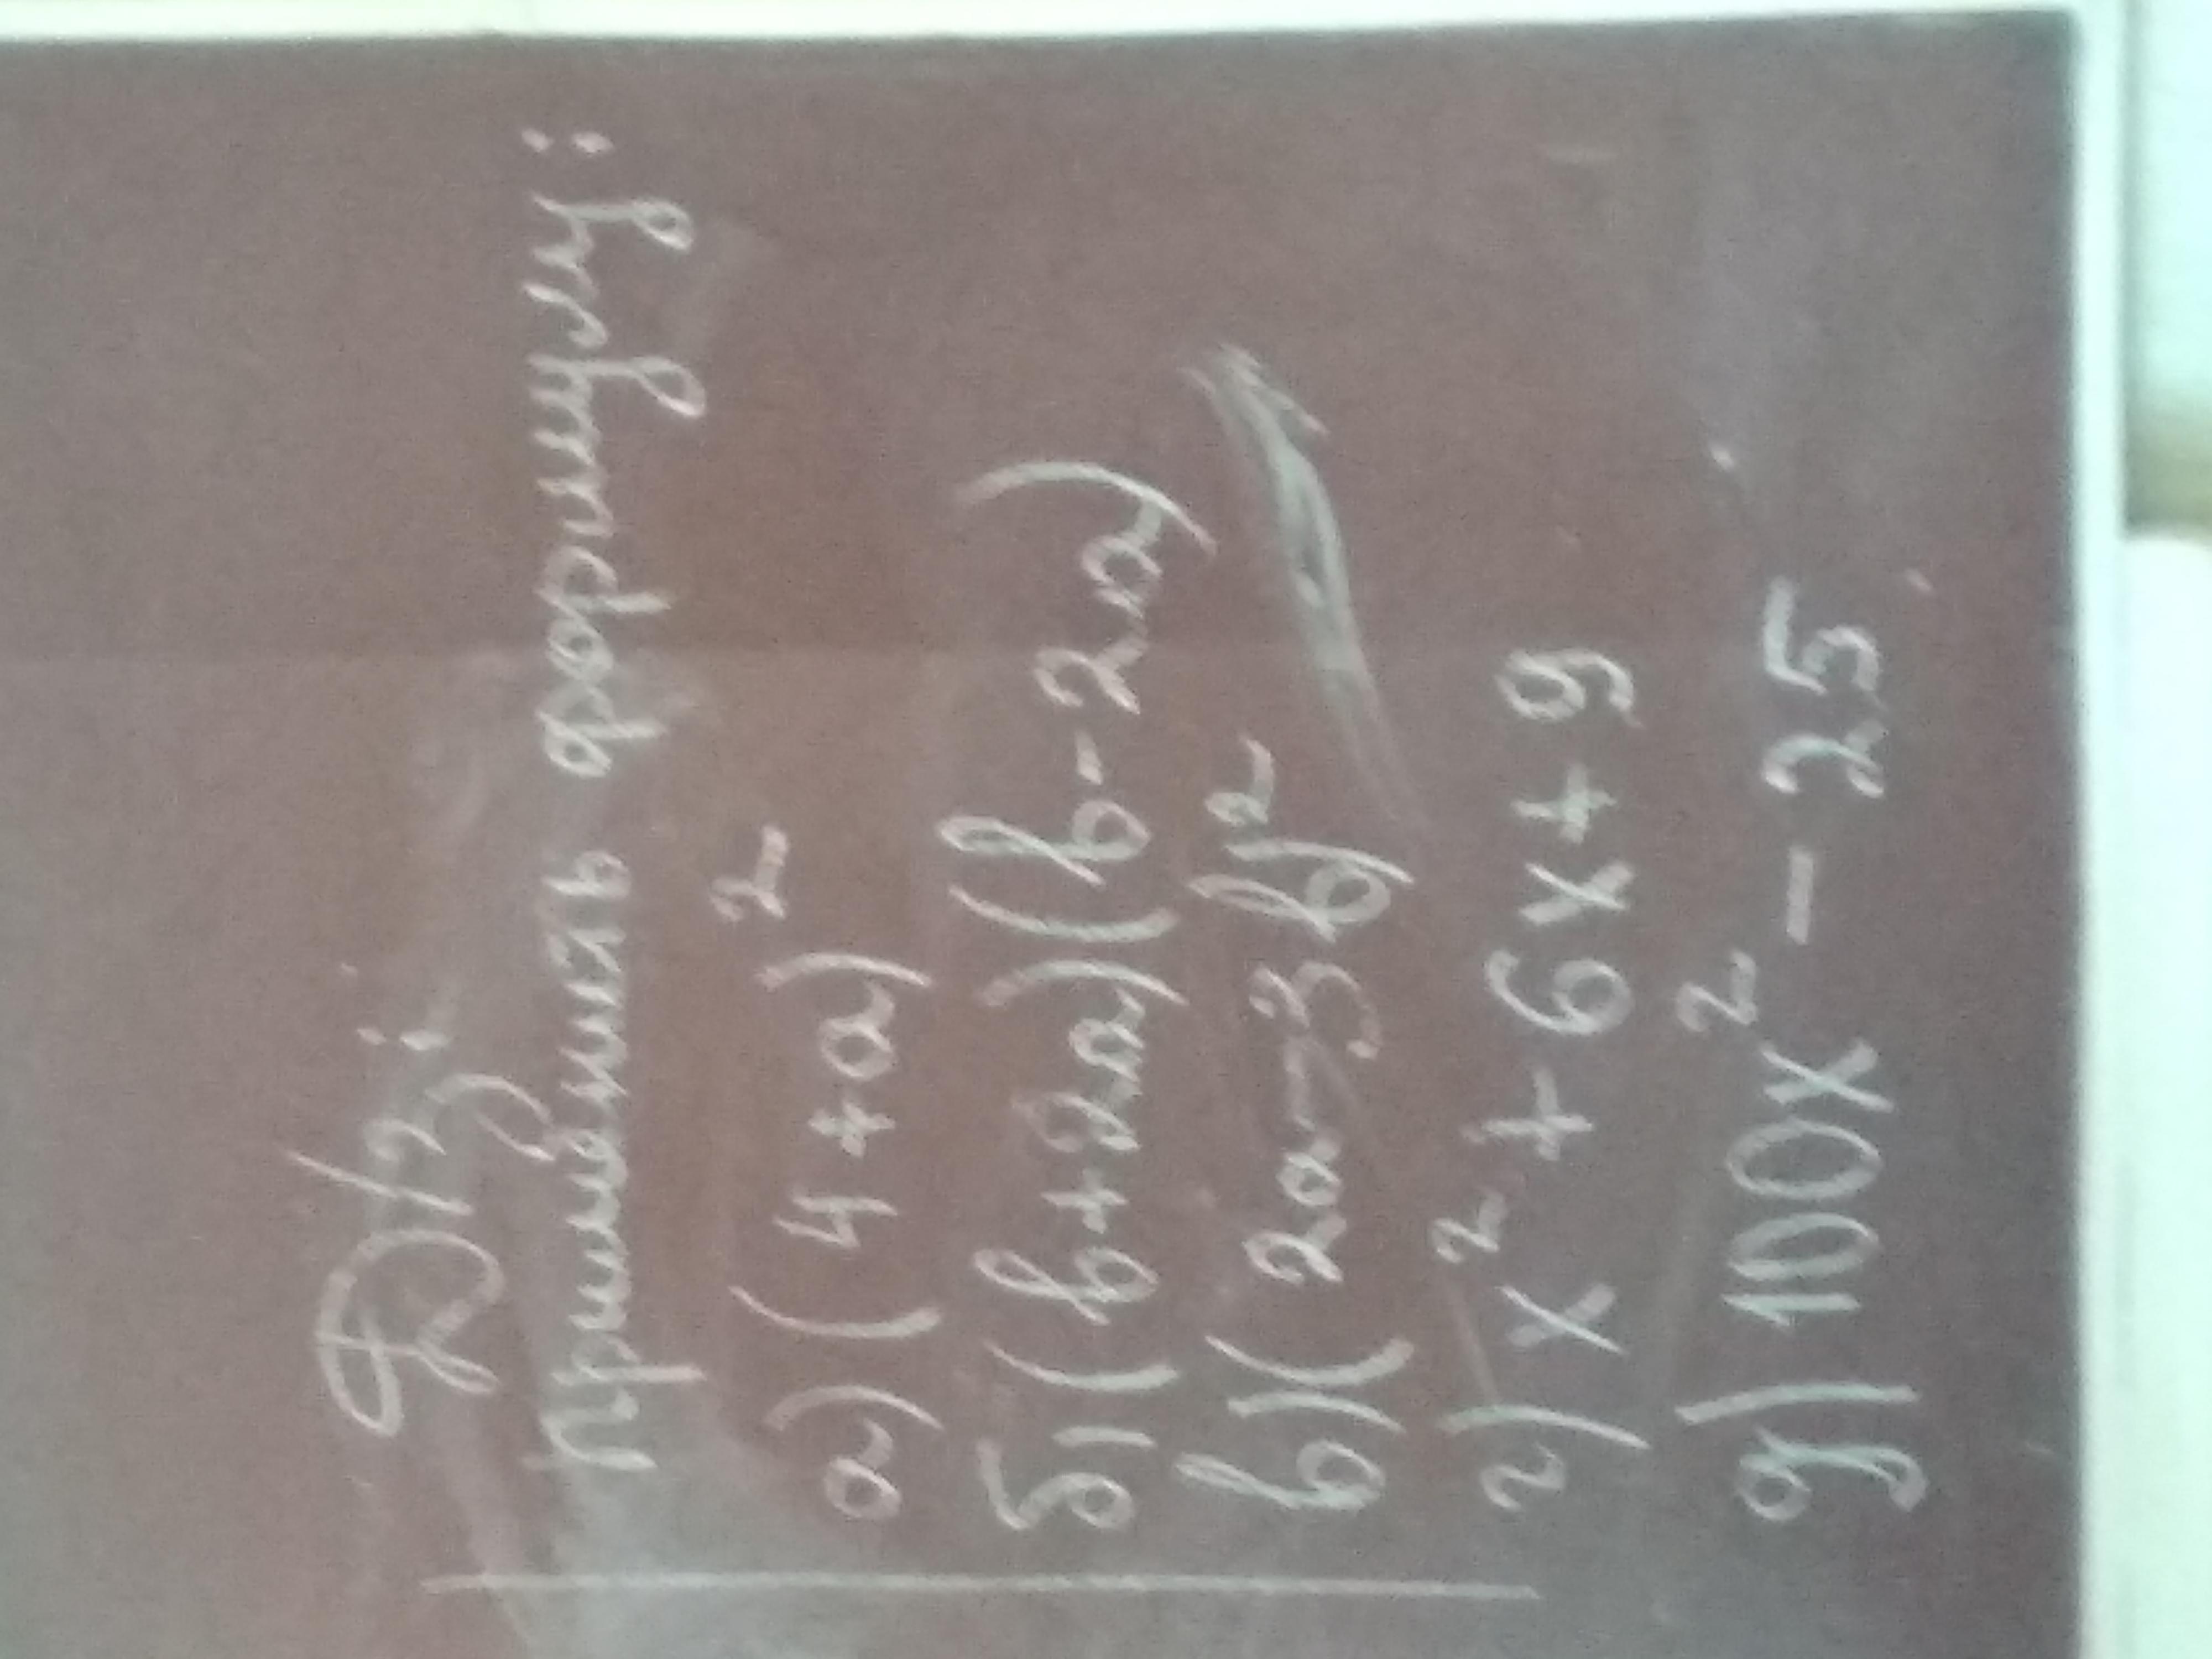 Д/з:
Применить формулу:
а) (4+а)²
б) (b+2a)(b-2a)
в) (2a-3b)²
г) x²+6x+9
д) 100x²-25